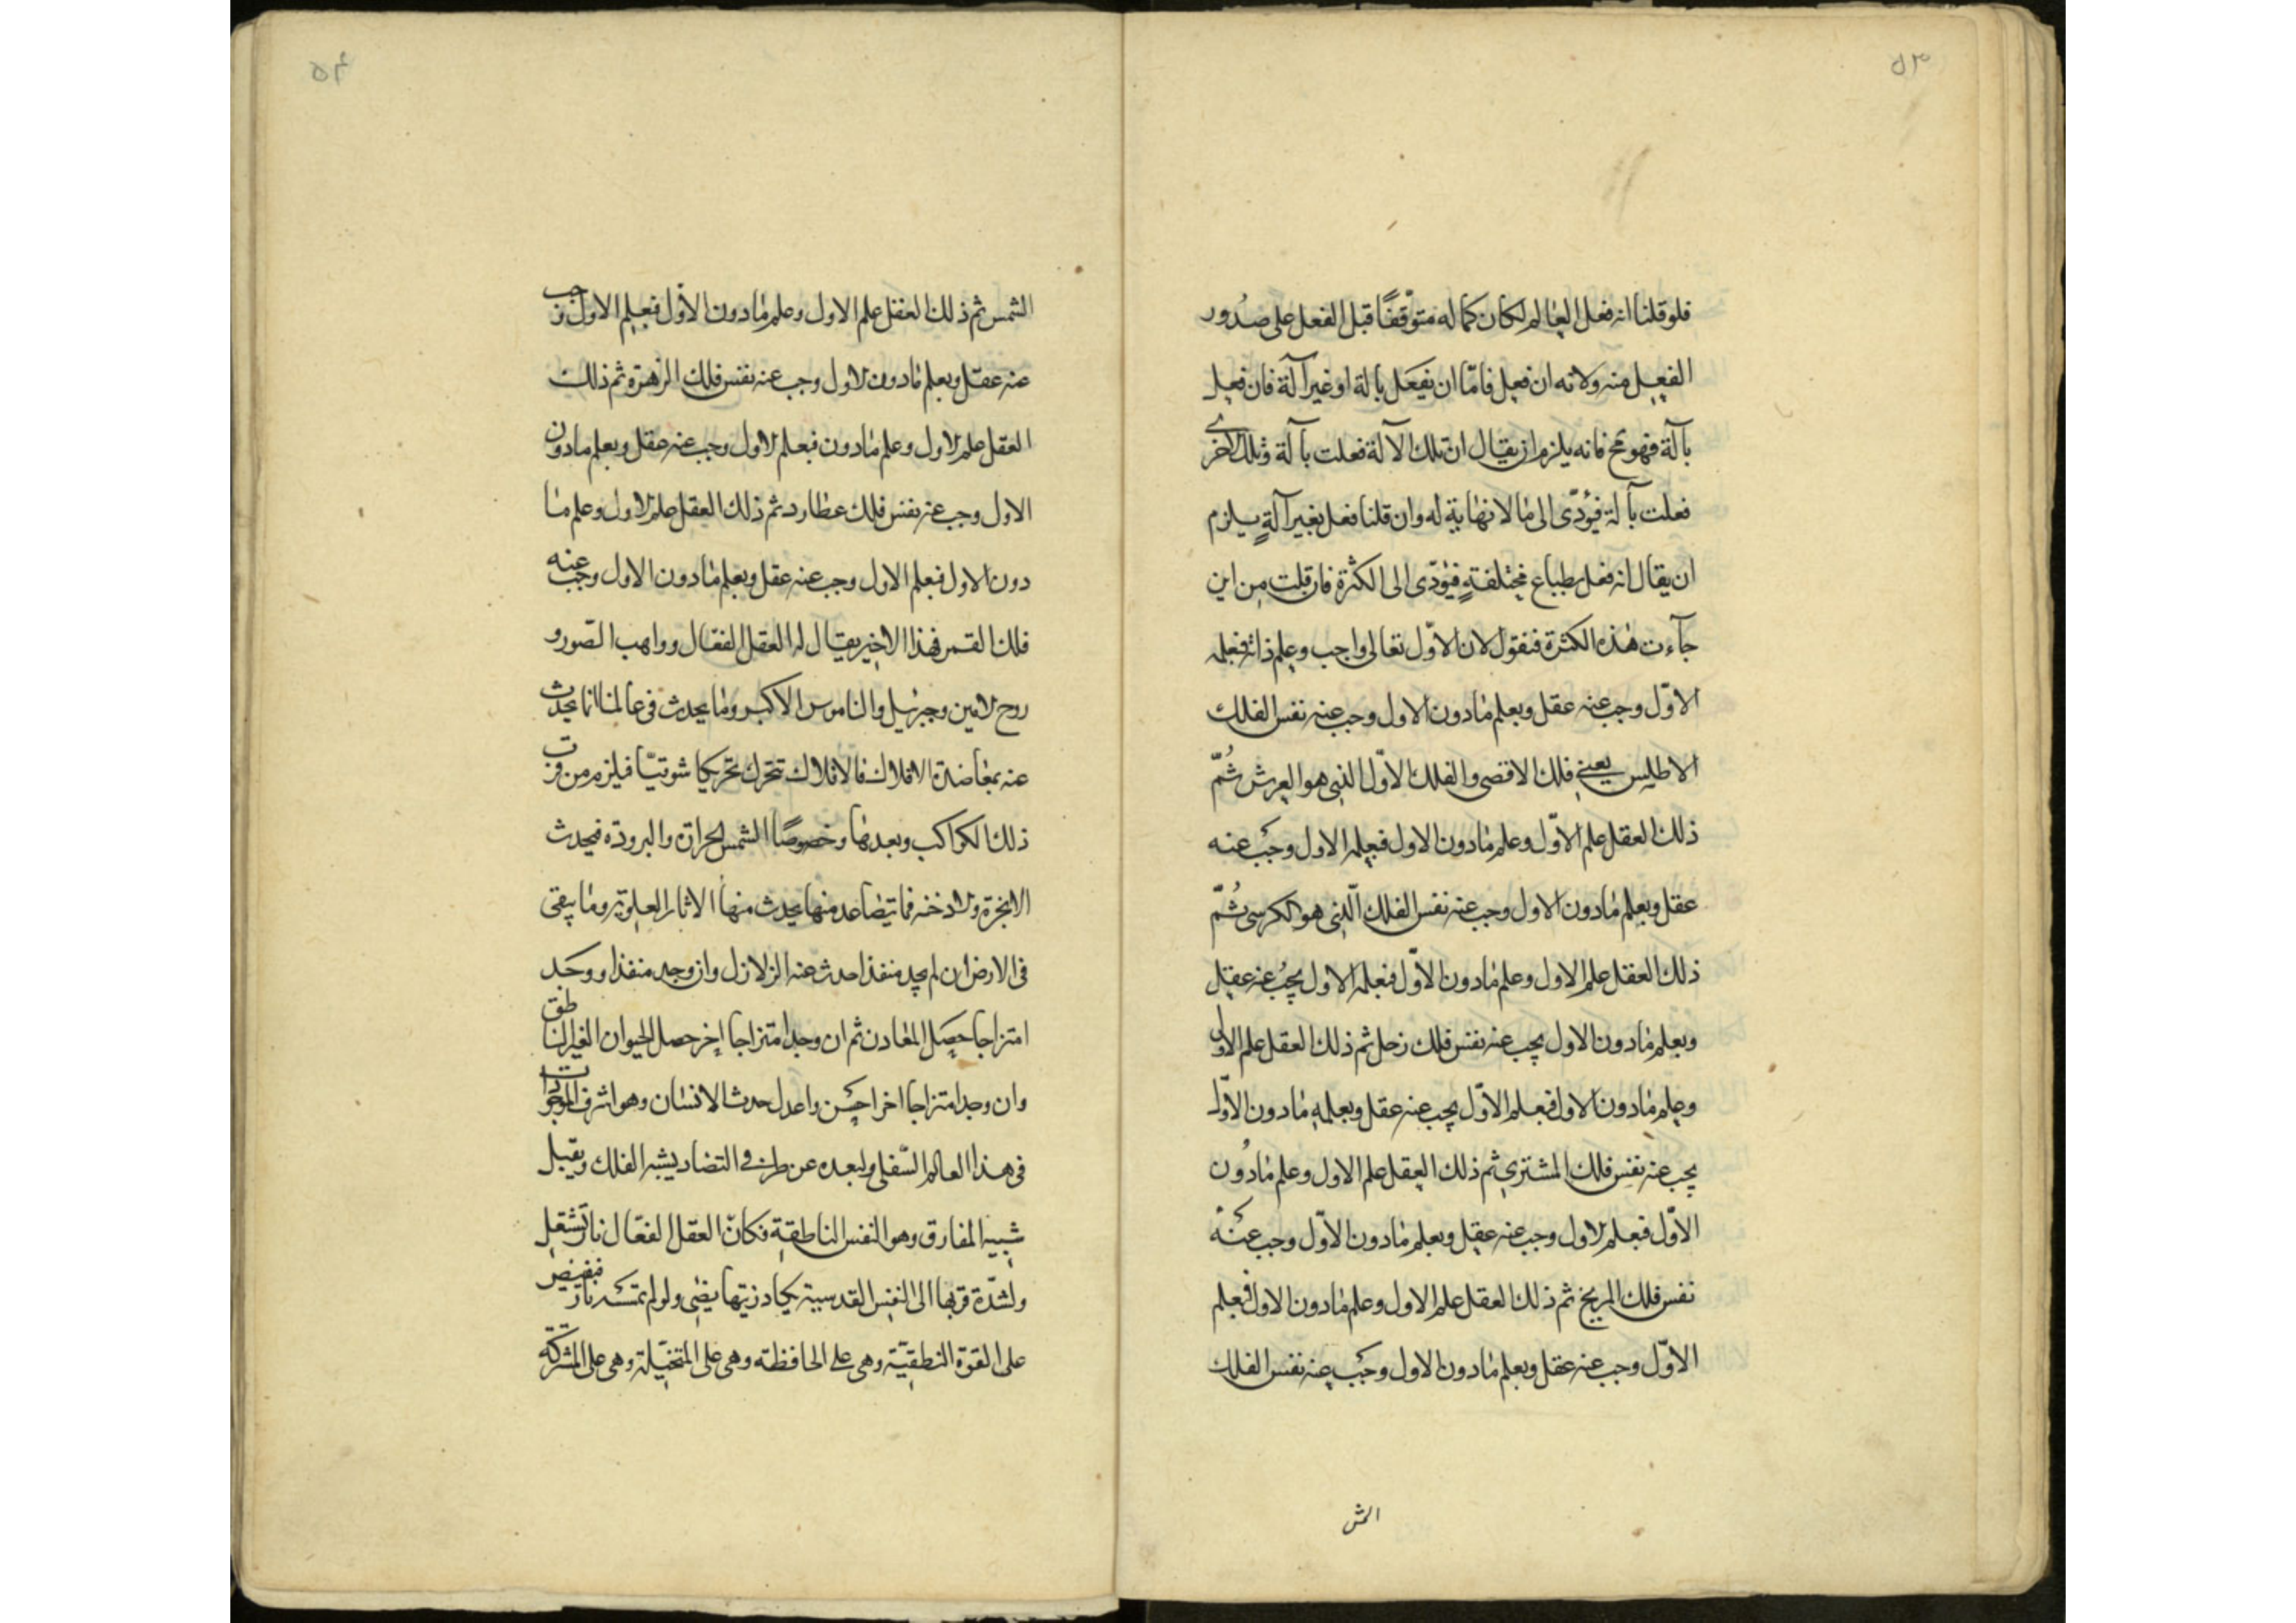 ٥٣
فلو قلنا انه فعل العالم لكان كماله متوقفًا قبل الفعل على صدور
الفعل منه ولانه ان فعل فامّا ان يفعل بالة او غير آلة فان فعل
بآلة فهو مح فانه يلزم ان يقال ان تلك الآلة فعلت بآلة وتلك الاخرى
فعلت بآلة فيؤدّى الى ما لا نهاية له وان قلنا فعل بغير آلةٍ يلزم
ان يقال انه فعل بطباع مختلفةٍ فيؤدّى الى الكثرة فان قلت من اين
جآءت هذه الكثرة فنقول لان الاوّل تعالى واجب وعلم ذاته فبعلمه
الاوّل وجب عنه عقل وبعلم ما دون الاول وجب عنه نفس الفلك
الاطلس يعنى فلك الاقصى والفلك الاوّل الذى هو العرش ثُمّ
ذلك العقل علم الاوّل وعلم ما دون الاول فبعلمه الاول وجب عنه
عقل وبعلم ما دون الاول وجب عنه نفس الفلك الّذى هو الكرسى ثُمّ
ذلك العقل علم الاول وعلم ما دون الاوّل فبعلمه الاول يجب عنه عقل
وبعلم ما دون الاول يجب عنه نفس فلك زحل ثم ذلك العقل علم الاول
وعلم ما دون الاول فبعلم الاوّل يجب عنه عقل وبعلمه ما دون الاوّل
يجب عنه نفس فلك المشترى ثم ذلك العقل علم الاول وعلم ما دُون
الاوّل فبعلم الاول وجب عنه عقل وبعلم ما دون الاوّل وجب عنه
نفس فلك المريخ ثم ذلك العقل علم الاول وعلم ما دون الاول فبعلم
الاوّل وجب عنه عقل وبعلم ما دون الاول وجب عنه نفس الفلك
الش
٥٤
الشمس ثم ذلك العقل علم الاول وعلم ما دون الاول فبعلم الاول وجب
عنه عقل وبعلم ما دون الاول وجب عنه نفس فلك الزهرة ثم ذلك
العقل علم الاول وعلم ما دون فبعلم الاول وجب عنه عقل وبعلم ما دون
الاول وجب عنه نفس فلك عطارد ثم ذلك العقل علم الاول وعلم ما
دون الاول فبعلم الاول وجب عنه عقل وبعلم ما دون الاول وجب عنه
فلك القمر فهذا الاخير يقال له العقل الفعّال وواهب الصّور و
روح الامين وجبرئيل والناموس الاكبر وما يحدث فى عالمنا انما يحدث
عنه بمعاضدة الافلاك فالافلاك تتحرك تحريكا شوقيّا فيلزم من قرب
ذلك الكواكب وبعدها وخصوصًا الشمس الحرارة والبرودة فيحدث
الابخرة والادخنه فما يتصاعد منها يحدث منها الاثار العلويّة وما يبقى
فى الارض ان لم يجد منفذا حدث عنه الزلازل وان وجد منفذا ووجد
امتزاجا حصل المعادن ثم ان وجد امتزاجا اخر حصل الحيوان الغير الناطق
وان وجد امتزاجا اخر احسن واعدل حدث الانسان وهو اشرف الموجودات
فى هذا العالم السّفلى ولبعده عن طرفى التضاد يشبه الفلك ويقبل
شبيه المفارق وهو النفس الناطقة فكان العقل الفعّال نار تشتعل
ولشدّة قربها الى النفس القدسية يكاد زيتها يضئ ولو لم تمسسه نار فيفيض
على القوة النطقيّة وهى على الحافظه وهى على المتخيّلة وهى على المشتركة